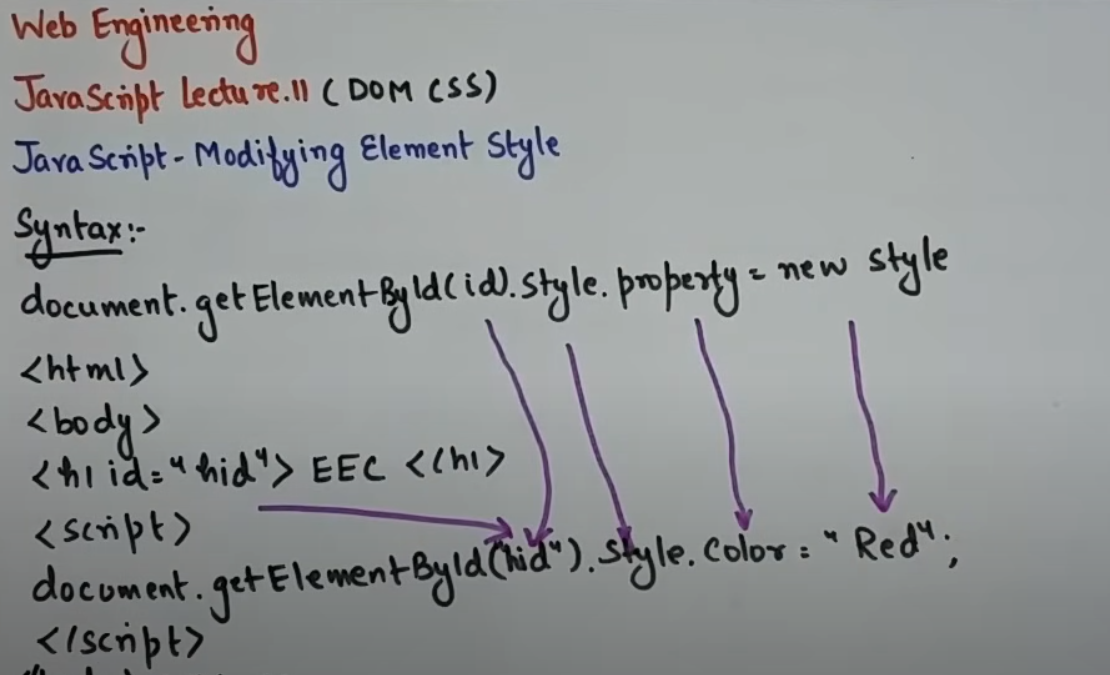 Web Engineering
JavaScript Lecture.11 (DOM CSS)
JavaScript - Modifying Element Style
Syntax:-
document.getElementById(id).Style.property = new style
<html>
<body>
<h1 id="hid"> EEC <(h1>
<script>
document.getElementById("hid").Style.Color = "Red";
</script>